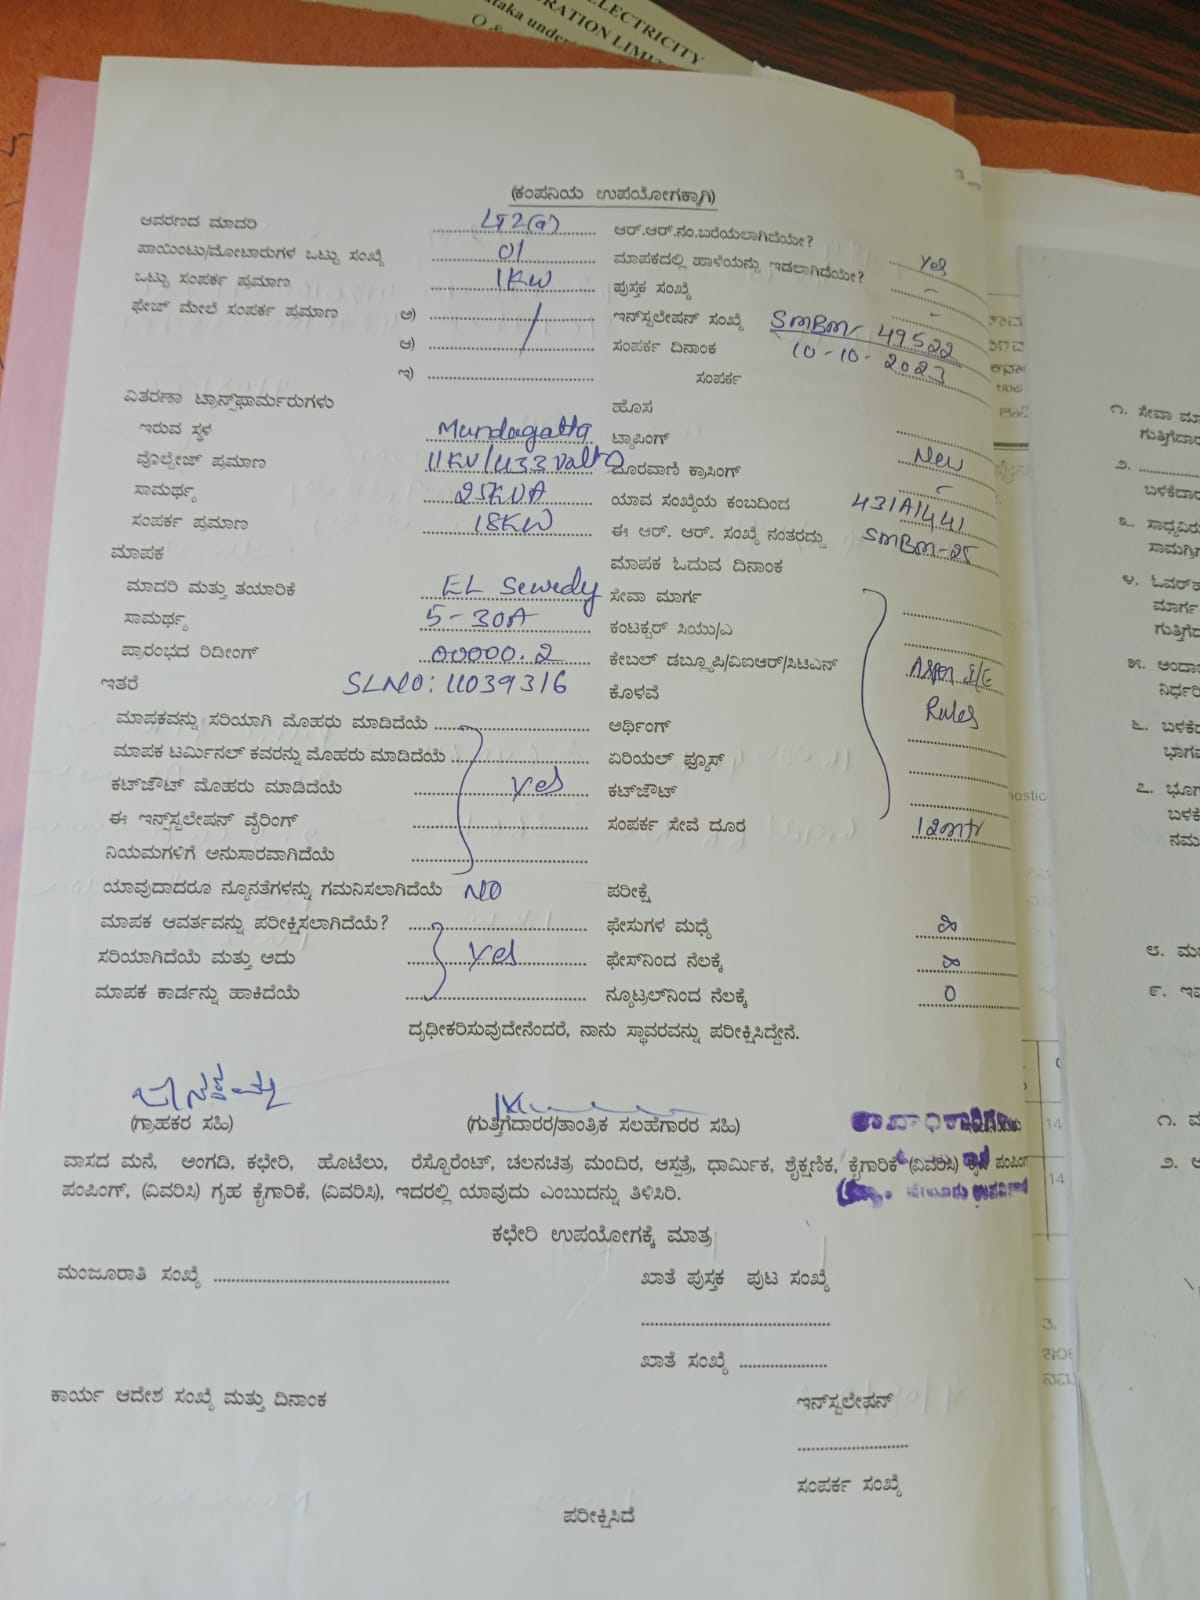 ELECTRICITY
ORATION LIMI
taka under
O &
(ಕಂಪನಿಯ ಉಪಯೋಗಕ್ಕಾಗಿ)
ಆವರಣದ ಮಾದರಿ LT2(a) ಆರ್.ಆರ್.ನಂ.ಬರೆಯಲಾಗಿದೆಯೇ? Yes
ಪಾಯಿಂಟು/ಮೋಟಾರುಗಳ ಒಟ್ಟು ಸಂಖ್ಯೆ 01 ಮಾಪಕದಲ್ಲಿ ಹಾಳೆಯನ್ನು ಇಡಲಾಗಿದೆಯೇ? -
ಒಟ್ಟು ಸಂಪರ್ಕ ಪ್ರಮಾಣ 1KW ಪುಸ್ತಕ ಸಂಖ್ಯೆ -
ಫೇಜ್ ಮೇಲೆ ಸಂಪರ್ಕ ಪ್ರಮಾಣ ಅ) ಇನ್‌ಸ್ಟಲೇಷನ್ ಸಂಖ್ಯೆ SMBM- 49522
ಆ) ಸಂಪರ್ಕ ದಿನಾಂಕ 10-10-2023
ಇ) ಸಂಪರ್ಕ
ವಿತರಣಾ ಟ್ರಾನ್ಸ್‌ಫಾರ್ಮರುಗಳು ಹೊಸ
ಇರುವ ಸ್ಥಳ Mundagatta ಟ್ಯಾಪಿಂಗ್ New
ವೋಲ್ಟೇಜ್ ಪ್ರಮಾಣ 11KV/433 Valts ದೂರವಾಣಿ ಕ್ರಾಸಿಂಗ್ -
ಸಾಮರ್ಥ್ಯ 25KVA ಯಾವ ಸಂಖ್ಯೆಯ ಕಂಬದಿಂದ 431A1441
ಸಂಪರ್ಕ ಪ್ರಮಾಣ 18KW ಈ ಆರ್. ಆರ್. ಸಂಖ್ಯೆ ನಂತರದ್ದು SMBM-25
ಮಾಪಕ ಮಾಪಕ ಓದುವ ದಿನಾಂಕ
ಮಾದರಿ ಮತ್ತು ತಯಾರಿಕೆ EL Sewedy ಸೇವಾ ಮಾರ್ಗ
ಸಾಮರ್ಥ್ಯ 5-30A ಕಂಟಕ್ಟರ್ ಸಿಯು/ಎ
ಪ್ರಾರಂಭದ ರಿಡೀಂಗ್ 00000.2 ಕೇಬಲ್ ಡಬ್ಲ್ಯೂಪಿ/ವಿಐಆರ್/ಸಿಟಿಎನ್ Asper I/E
ಇತರೆ SLNO: 11039316 ಕೊಳವೆ Rules
ಮಾಪಕವನ್ನು ಸರಿಯಾಗಿ ಮೊಹರು ಮಾಡಿದೆಯೆ ಅರ್ಥಿಂಗ್
ಮಾಪಕ ಟರ್ಮಿನಲ್ ಕವರನ್ನು ಮೊಹರು ಮಾಡಿದೆಯೆ ಏರಿಯಲ್ ಫ್ಯೂಸ್
ಕಟ್‌ಔಟ್ ಮೊಹರು ಮಾಡಿದೆಯೆ Yes ಕಟ್‌ಔಟ್
ಈ ಇನ್ಸ್‌ಸ್ಟಲೇಷನ್ ವೈರಿಂಗ್ ಸಂಪರ್ಕ ಸೇವೆ ದೂರ 12mtr
ನಿಯಮಗಳಿಗೆ ಅನುಸಾರವಾಗಿದೆಯೆ
ಯಾವುದಾದರೂ ನ್ಯೂನತೆಗಳನ್ನು ಗಮನಿಸಲಾಗಿದೆಯೆ NO ಪರೀಕ್ಷೆ
ಮಾಪಕ ಆವರ್ತವನ್ನು ಪರೀಕ್ಷಿಸಲಾಗಿದೆಯೆ? ಫೇಸುಗಳ ಮಧ್ಯೆ ∞
ಸರಿಯಾಗಿದೆಯೆ ಮತ್ತು ಅದು Yes ಫೇಸ್‌ನಿಂದ ನೆಲಕ್ಕೆ ∞
ಮಾಪಕ ಕಾರ್ಡನ್ನು ಹಾಕಿದೆಯೆ ನ್ಯೂಟ್ರಲ್‌ನಿಂದ ನೆಲಕ್ಕೆ 0
ದೃಢೀಕರಿಸುವುದೇನೆಂದರೆ, ನಾನು ಸ್ಥಾವರವನ್ನು ಪರೀಕ್ಷಿಸಿದ್ದೇನೆ.
(ಗ್ರಾಹಕರ ಸಹಿ) (ಗುತ್ತಿಗೆದಾರರ/ತಾಂತ್ರಿಕ ಸಲಹೆಗಾರರ ಸಹಿ)
ವಾಸದ ಮನೆ, ಅಂಗಡಿ, ಕಛೇರಿ, ಹೊಟೆಲು, ರೆಸ್ಟೋರೆಂಟ್, ಚಲನಚಿತ್ರ ಮಂದಿರ, ಆಸ್ಪತ್ರೆ, ಧಾರ್ಮಿಕ, ಶೈಕ್ಷಣಿಕ, ಕೈಗಾರಿಕೆ (ವಿವರಿಸಿ) ಪಂಪಿಂಗ್
ಪಂಪಿಂಗ್, (ವಿವರಿಸಿ) ಗೃಹ ಕೈಗಾರಿಕೆ, (ವಿವರಿಸಿ), ಇದರಲ್ಲಿ ಯಾವುದು ಎಂಬುದನ್ನು ತಿಳಿಸಿರಿ.
ಕಛೇರಿ ಉಪಯೋಗಕ್ಕೆ ಮಾತ್ರ
ಮಂಜೂರಾತಿ ಸಂಖ್ಯೆ ಖಾತೆ ಪುಸ್ತಕ ಪುಟ ಸಂಖ್ಯೆ
ಖಾತೆ ಸಂಖ್ಯೆ
ಕಾರ್ಯ ಆದೇಶ ಸಂಖ್ಯೆ ಮತ್ತು ದಿನಾಂಕ ಇನ್‌ಸ್ಟಲೇಷನ್
ಸಂಪರ್ಕ ಸಂಖ್ಯೆ
ಪರೀಕ್ಷಿಸಿದೆ